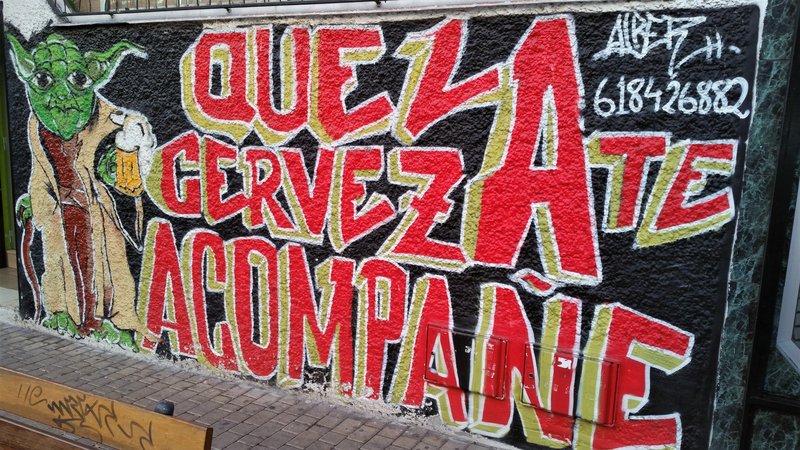 QUE LA
CERVEZA TE
ACOMPAÑE
ALBER
618426882